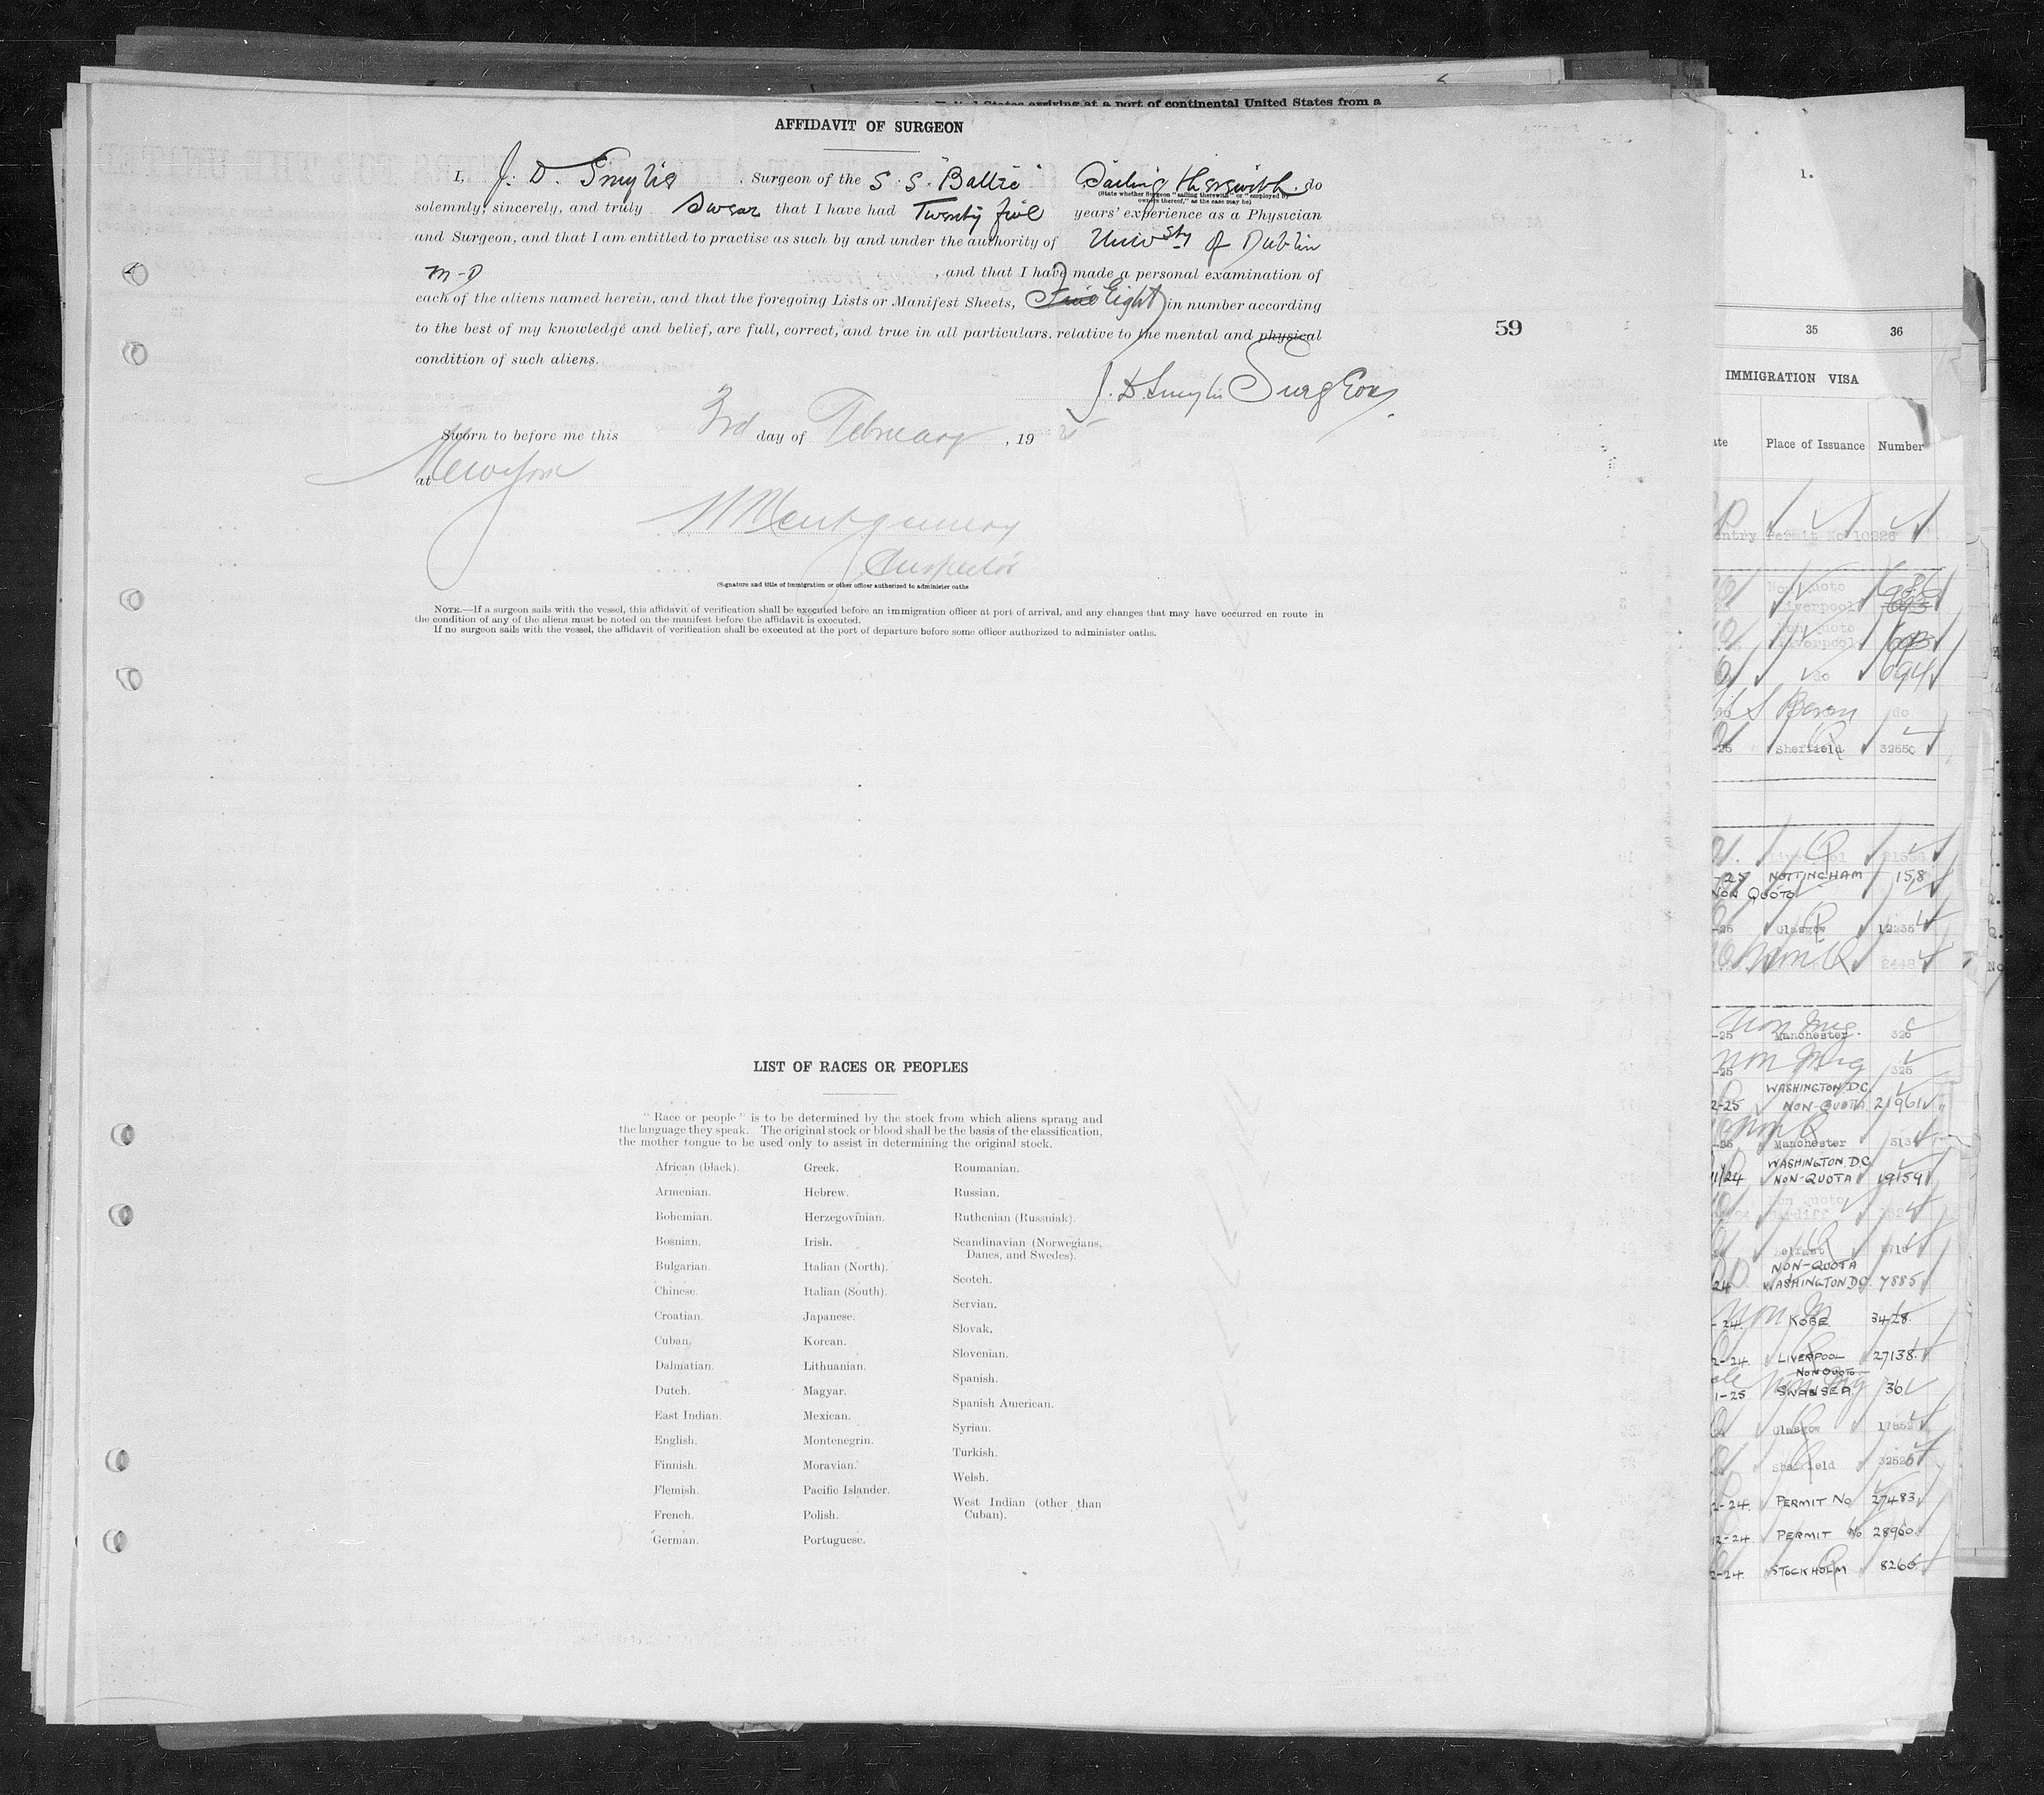 United States arriving at a port of continental United States from a
AFFIDAVIT OF SURGEON
I, J. D. Smylie, Surgeon of the S. S. "Baltic" Sailing therewith, do
(State whether Surgeon "sailing therewith" or "employed by
owners thereof," as the case may be)
solemnly, sincerely, and truly swear that I have had Twenty five years' experience as a Physician
and Surgeon, and that I am entitled to practise as such by and under the authority of Univsty of Dublin
M-D, and that I have made a personal examination of
each of the aliens named herein, and that the foregoing Lists or Manifest Sheets, Eight in number according
to the best of my knowledge and belief, are full, correct, and true in all particulars, relative to the mental and physical
condition of such aliens.
59
J. D. Smylie Surgeon
Sworn to before me this 3rd day of February, 1925
at New York
Montgomery
Inspector
(Signature and title of immigration or other officer authorized to administer oaths
NOTE.—If a surgeon sails with the vessel, this affidavit of verification shall be executed before an immigration officer at port of arrival, and any changes that may have occurred en route in
the condition of any of the aliens must be noted on the manifest before the affidavit is executed.
If no surgeon sails with the vessel, the affidavit of verification shall be executed at the port of departure before some officer authorized to administer oaths.
LIST OF RACES OR PEOPLES
"Race or people" is to be determined by the stock from which aliens sprang and
the language they speak. The original stock or blood shall be the basis of the classification,
the mother tongue to be used only to assist in determining the original stock.
African (black).
Armenian.
Bohemian.
Bosnian.
Bulgarian.
Chinese.
Croatian.
Cuban.
Dalmatian.
Dutch.
East Indian.
English.
Finnish.
Flemish.
French.
German.
Greek.
Hebrew.
Herzegovinian.
Irish.
Italian (North).
Italian (South).
Japanese.
Korean.
Lithuanian.
Magyar.
Mexican.
Montenegrin.
Moravian.
Pacific Islander.
Polish.
Portuguese.
Roumanian.
Russian.
Ruthenian (Russniak).
Scandinavian (Norwegians,
Danes, and Swedes).
Scotch.
Servian.
Slovak.
Slovenian.
Spanish.
Spanish American.
Syrian.
Turkish.
Welsh.
West Indian (other than
Cuban).
1.
35 36
IMMIGRATION VISA
Place of Issuance Number
Permit No 10226
Non Quoto
Liverpool
Non Quoto
Liverpool
do 694
do
-25 Sheffield 32550
Liverpool
-25 NOTTINGHAM 158
NON QUOTO
-25 Glasgow 12235
Non Q 2448
Non Img
-25 Manchester 326
Non Img
-25 325
WASHINGTON D.C.
2-25 NON-QUOTA 21961
Non Q
Manchester 513
WASHINGTON D.C.
11/24 NON-QUOTA 19159
Non Quoto
Cardiff
Belfast
NON-QUOTA
24 WASHINGTON D.C. 7885
-24. KOBE 3428
2-24. LIVERPOOL 27138
NON QUOTO
1-25 SWANSEA 36
Glasgow 17852
Sheffield 32526
2-24. PERMIT No 27483
12-24. PERMIT No 28960
2-24. STOCKHOLM 8266